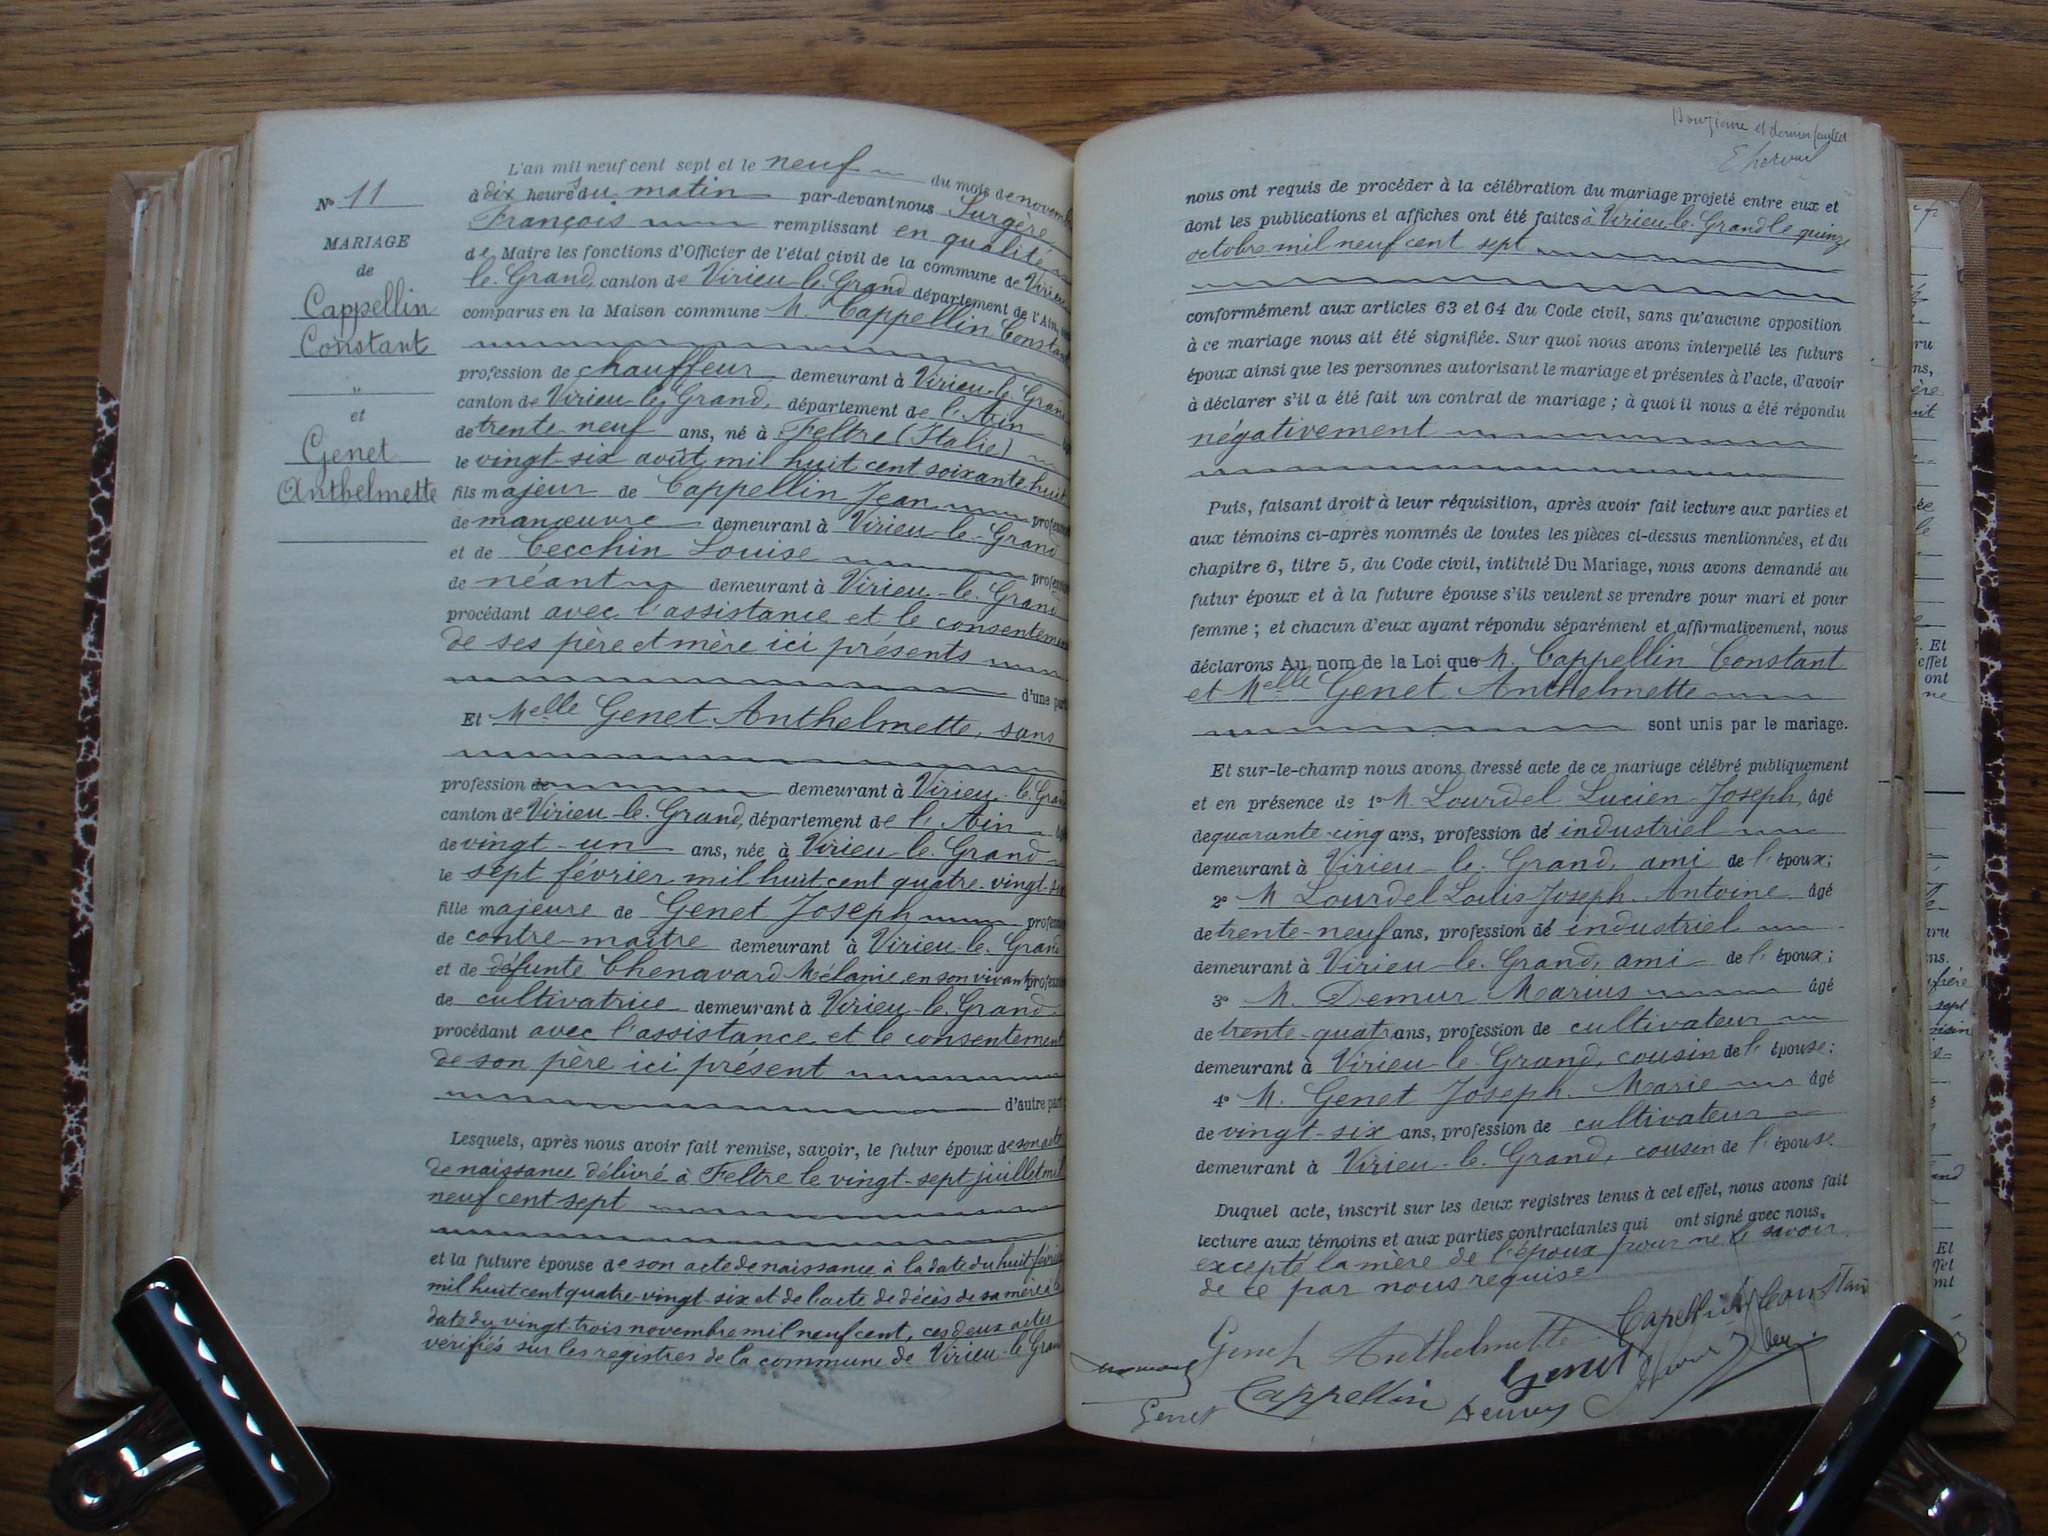 N° 11
MARIAGE
de
Cappellin
Constant
"
et
Genet
Anthelmette
L'an mil neuf cent sept et le neuf du mois de novem
à dix heures du matin par-devant nous Surgère
François remplissant en qualité
de Maire les fonctions d'Officier de l'état civil de la commune de Virieu
le-Grand, canton de Virieu-le-Grand département de l'Ain,
comparus en la Maison commune M. Cappellin Constant
profession de chauffeur demeurant à Virieu-le-Grand
canton de Virieu-le-Grand, département de l'Ain
de trente-neuf ans, né à Feltre (Italie)
le vingt-six août mil huit cent soixante huit
fils majeur de Cappellin Jean profession
de manœuvre demeurant à Virieu-le-Grand
et de Cecchin Louise profession
de néant demeurant à Virieu-le-Grand
procédant avec l'assistance et le consentement
de ses père et mère ici présents
d'une part
Et Melle Genet Anthelmette, sans
profession de demeurant à Virieu-le-Grand
canton de Virieu-le-Grand, département de l'Ain
de vingt-un ans, née à Virieu-le-Grand
le sept février mil huit cent quatre-vingt-six
fille majeure de Genet Joseph profession
de contre-maître demeurant à Virieu-le-Grand
et de défunte Chenavard Mélanie, en son vivant profession
de cultivatrice demeurant à Virieu-le-Grand
procédant avec l'assistance et le consentement
de son père ici présent
d'autre part
Lesquels, après nous avoir fait remise, savoir, le futur époux de son acte
de naissance délivré à Feltre le vingt-sept juillet mil
neuf cent sept
et la future épouse de son acte de naissance à la date du huit février
mil huit cent quatre-vingt-six et de l'acte de décès de sa mère à la
date du vingt-trois novembre mil neuf cent, ces deux actes
vérifiés sur les registres de la commune de Virieu-le-Grand
Douzième et dernier feuillet
nous ont requis de procéder à la célébration du mariage projeté entre eux et
dont les publications et affiches ont été faites à Virieu-le-Grand le quinze
octobre mil neuf cent sept
conformément aux articles 63 et 64 du Code civil, sans qu'aucune opposition
à ce mariage nous ait été signifiée. Sur quoi nous avons interpellé les futurs
époux ainsi que les personnes autorisant le mariage et présentes à l'acte, d'avoir
à déclarer s'il a été fait un contrat de mariage ; à quoi il nous a été répondu
négativement
Puis, faisant droit à leur réquisition, après avoir fait lecture aux parties et
aux témoins ci-après nommés de toutes les pièces ci-dessus mentionnées, et du
chapitre 6, titre 5, du Code civil, intitulé Du Mariage, nous avons demandé au
futur époux et à la future épouse s'ils veulent se prendre pour mari et pour
femme ; et chacun d'eux ayant répondu séparément et affirmativement, nous
déclarons Au nom de la Loi que M. Cappellin Constant
et Melle Genet Anthelmette
sont unis par le mariage.
Et sur-le-champ nous avons dressé acte de ce mariage célébré publiquement
et en présence de 1° M. Lourdel Lucien-Joseph, âgé
de quarante-cinq ans, profession d' industriel
demeurant à Virieu-le-Grand, ami de l'époux;
2° M Lourdel Louis Joseph Antoine âgé
de trente-neuf ans, profession d' industriel
demeurant à Virieu-le-Grand, ami de l'époux;
3° M. Demur Marius âgé
de trente-quatre ans, profession de cultivateur
demeurant à Virieu-le-Grand, cousin de l'épouse;
4° M. Genet Joseph-Marie âgé
de vingt-six ans, profession de cultivateur
demeurant à Virieu-le-Grand, cousin de l'épouse.
Duquel acte, inscrit sur les deux registres tenus à cet effet, nous avons fait
lecture aux témoins et aux parties contractantes qui ont signé avec nous.
excepté la mère de l'époux pour ne le savoir
de ce par nous requise
Genet Anthelmette Capellin Constan
Genet
Genet Cappellin Demur